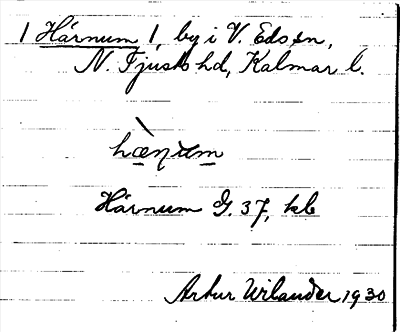 1 Härnum 1, by i V. Eds sn,
N. Tjusts hd, Kalmar l.
hæ̀n̥um
Härnum G. 37, kb
Artur Wilander 1930